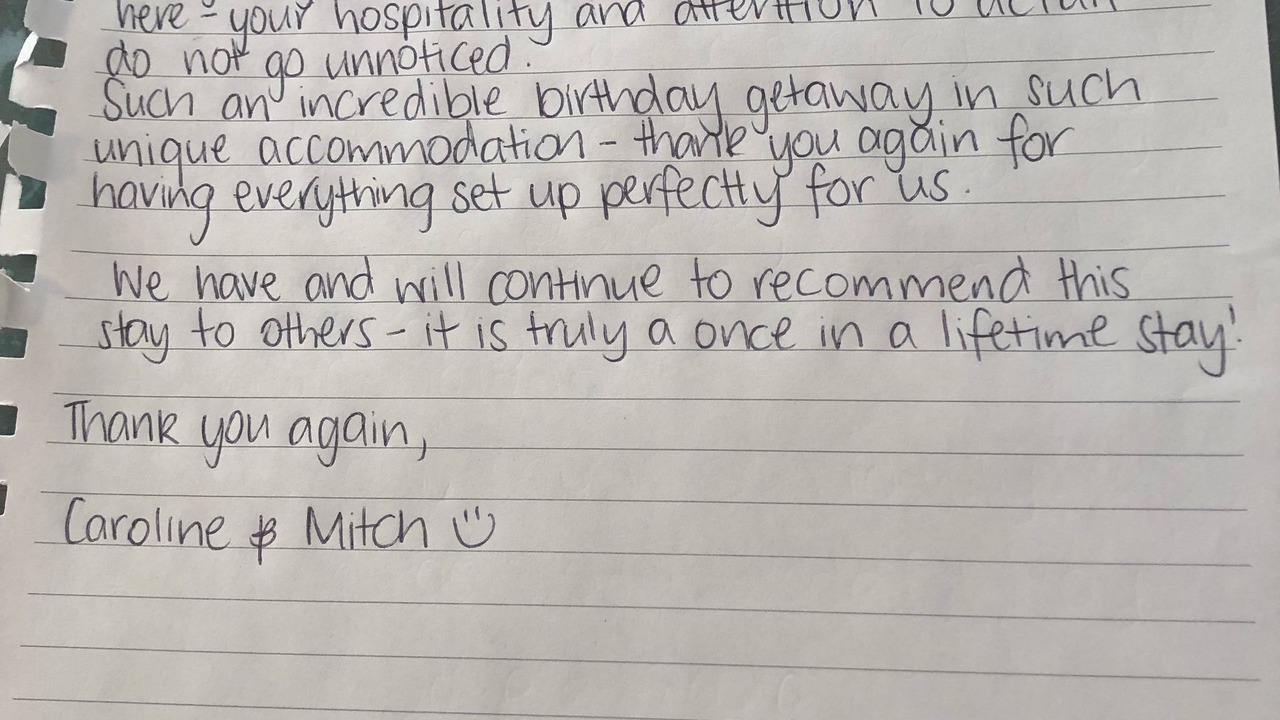 here - your hospitality and attention to detail
do not go unnoticed.
Such an incredible birthday getaway in such
unique accommodation - thank you again for
having everything set up perfectly for us.
We have and will continue to recommend this
stay to others - it is truly a once in a lifetime stay!
Thank you again,
Caroline & Mitch ☺